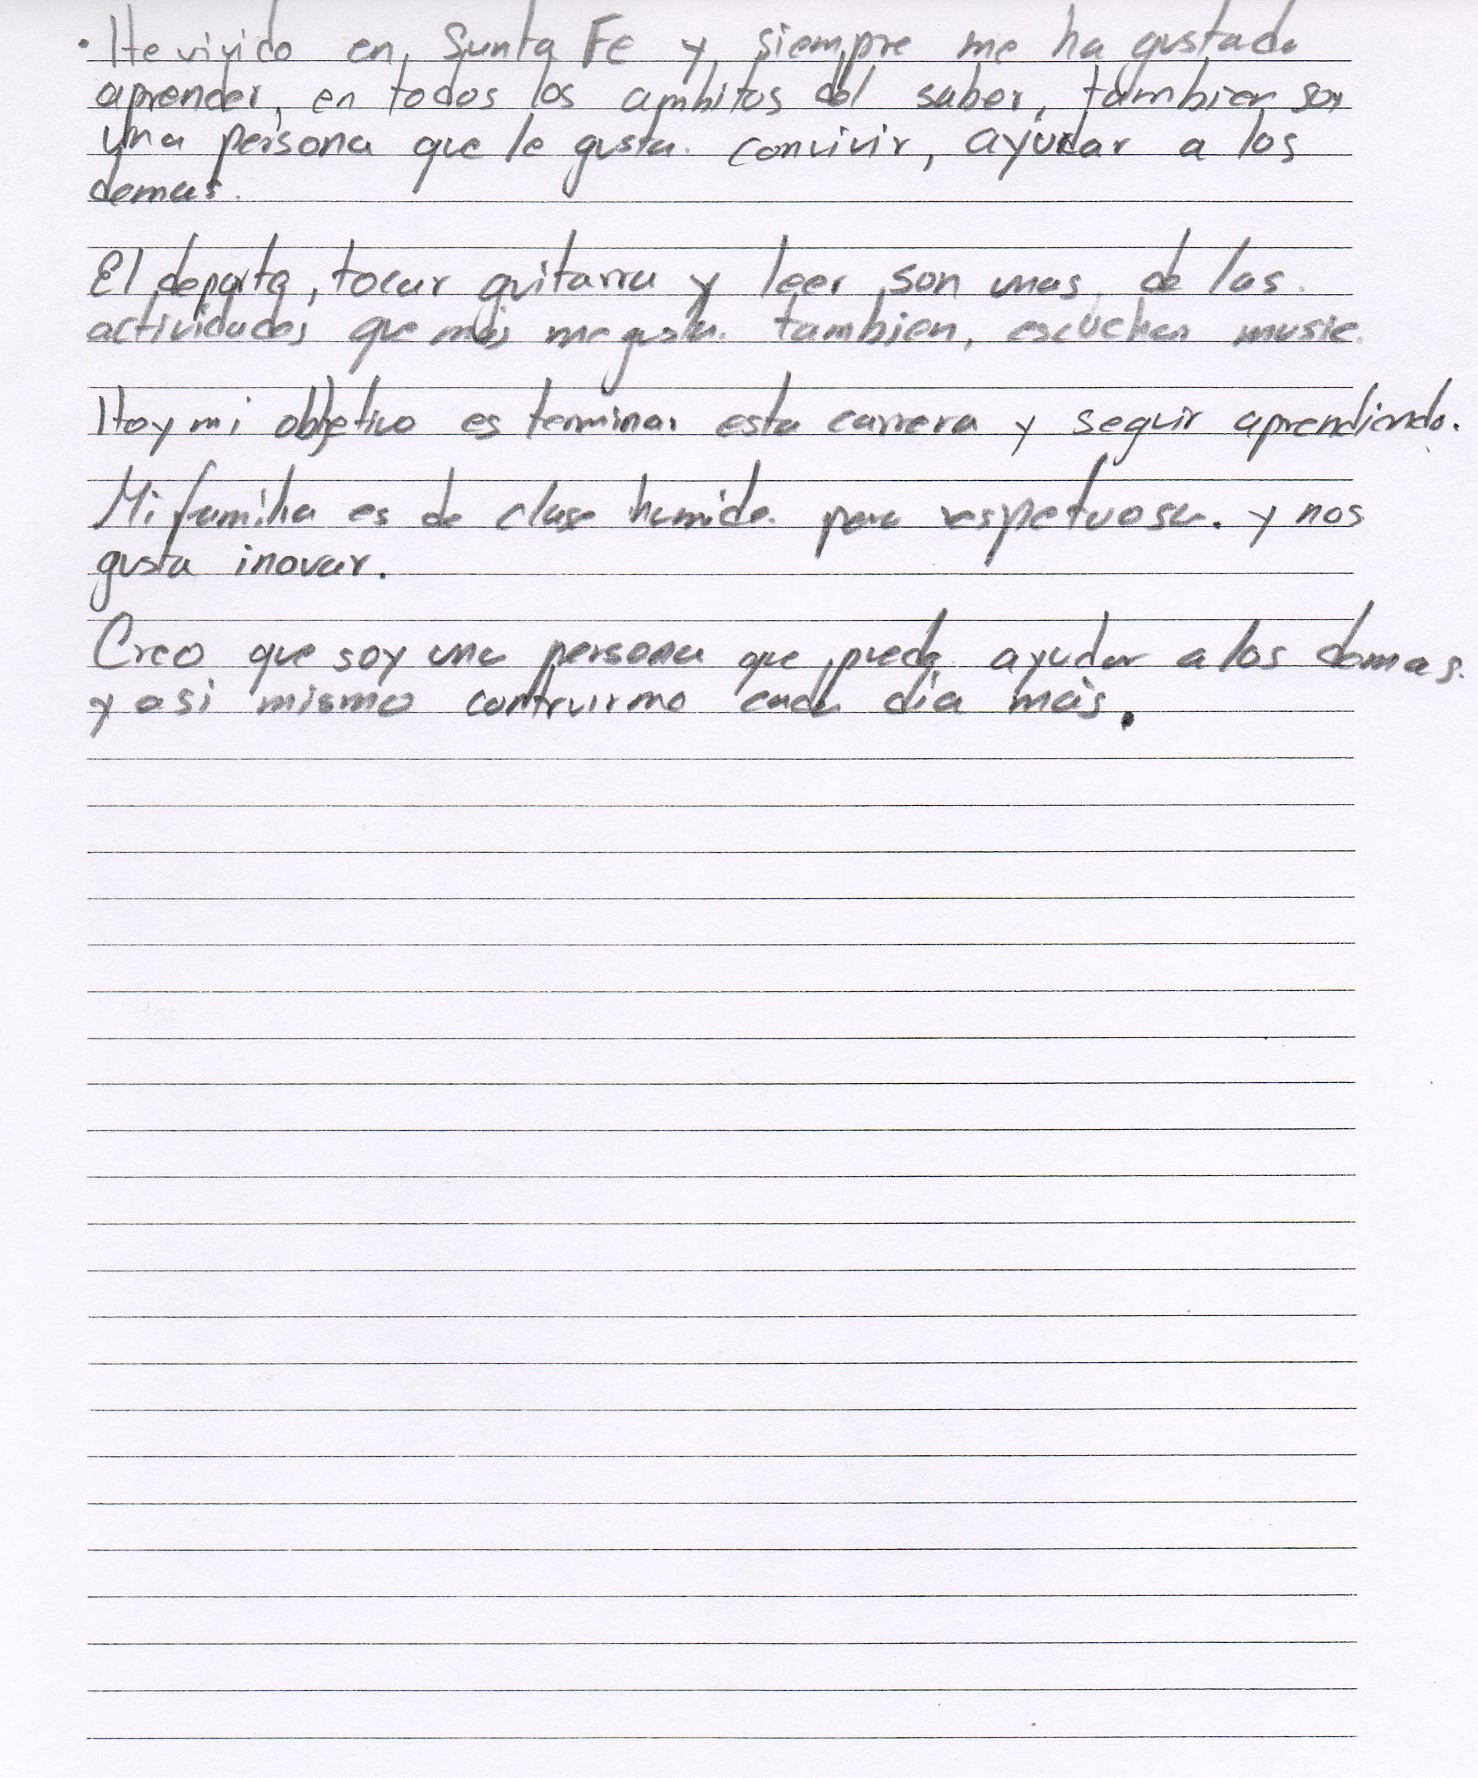 . He vivido en Santa Fe y siempre me ha gustado
aprender, en todos los ambitos del saber, tambien soy
una persona que le gusta convivir, ayudar a los
demas.
El deporte, tocar guitarra y leer son unas de las
actividades que más me gusta. tambien, escuchar music.
Hoy mi objetivo es terminar esta carrera y seguir aprendiendo.
Mi familia es de clase humida pero respetuosa. y nos
gusta inovar.
Creo que soy una persona que puede ayudar a los demas.
y asi mismo contruirme cada día más.